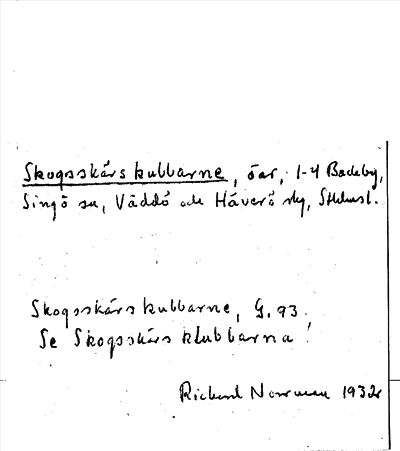 Skogsskärskubbarne, öar, 1-4 Backby,
Singö sn, Väddö och Häverö skg, Sthlmsl.
Skogsskärskubbarne, G. 93.
Se Skogsskärs klubbarna!
Richard Norrman 1932